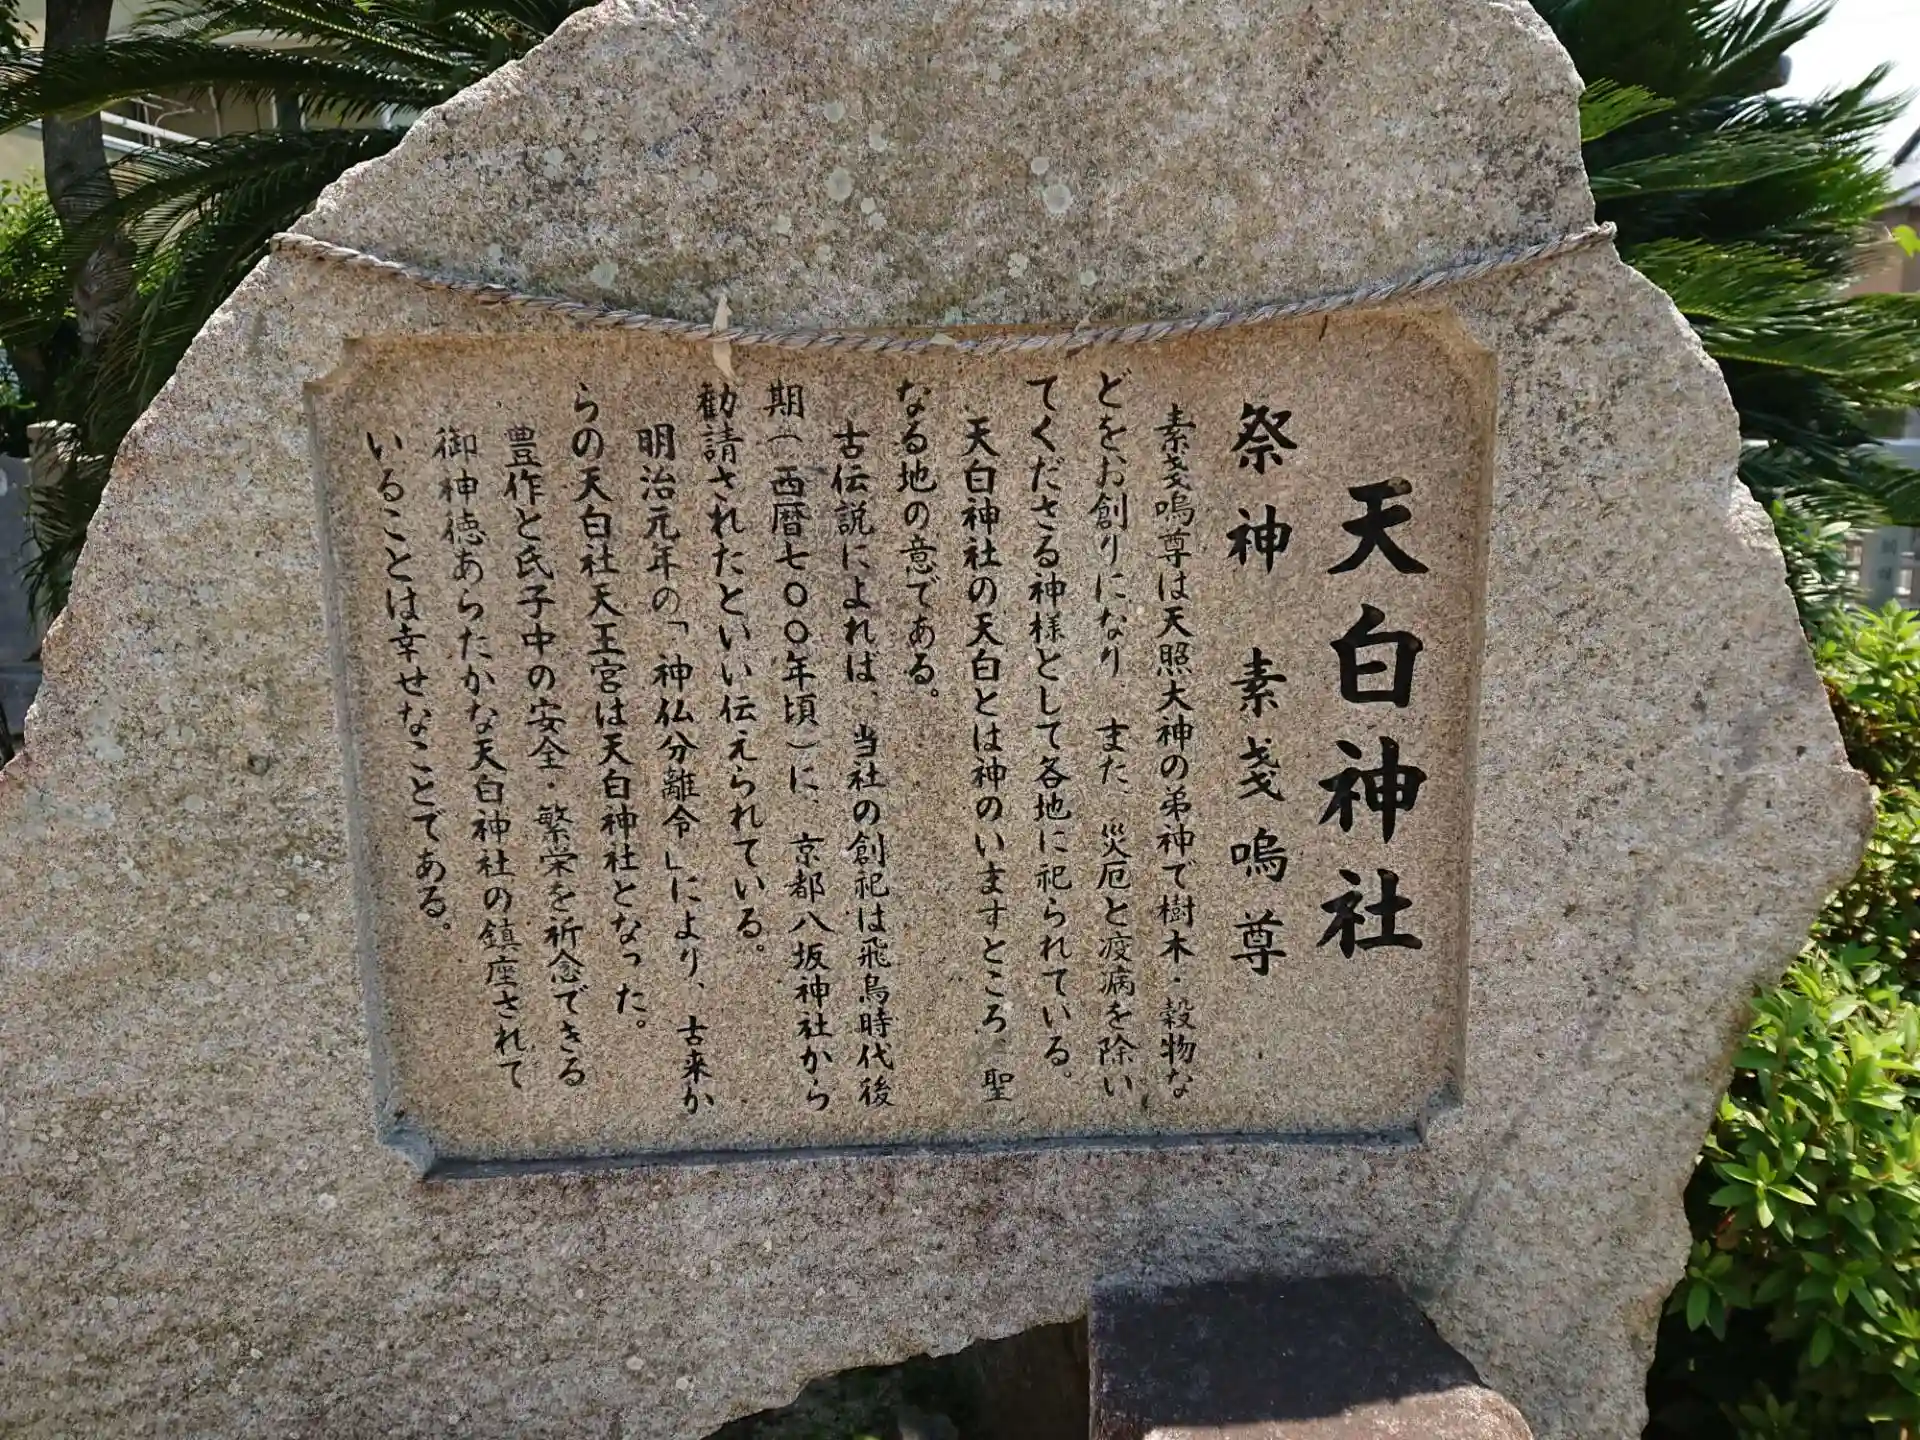 天白神社
祭神 素戔嗚尊
素戔嗚尊は天照大神の弟神で樹木・穀物な
どをお創りになり また、災厄と疫病を除い
てくださる神様として各地に祀られている。
天白神社の天白とは神のいますところ、聖
なる地の意である。
古伝説によれば、当社の創祀は飛鳥時代後
期(西暦七〇〇年頃)に、京都八坂神社から
勧請されたといい伝えられている。
明治元年の「神仏分離令」により、古来か
らの天白社天王宮は天白神社となった。
豊作と氏子中の安全・繁栄を祈念できる
御神徳あらたかな天白神社の鎮座されて
いることは幸せなことである。